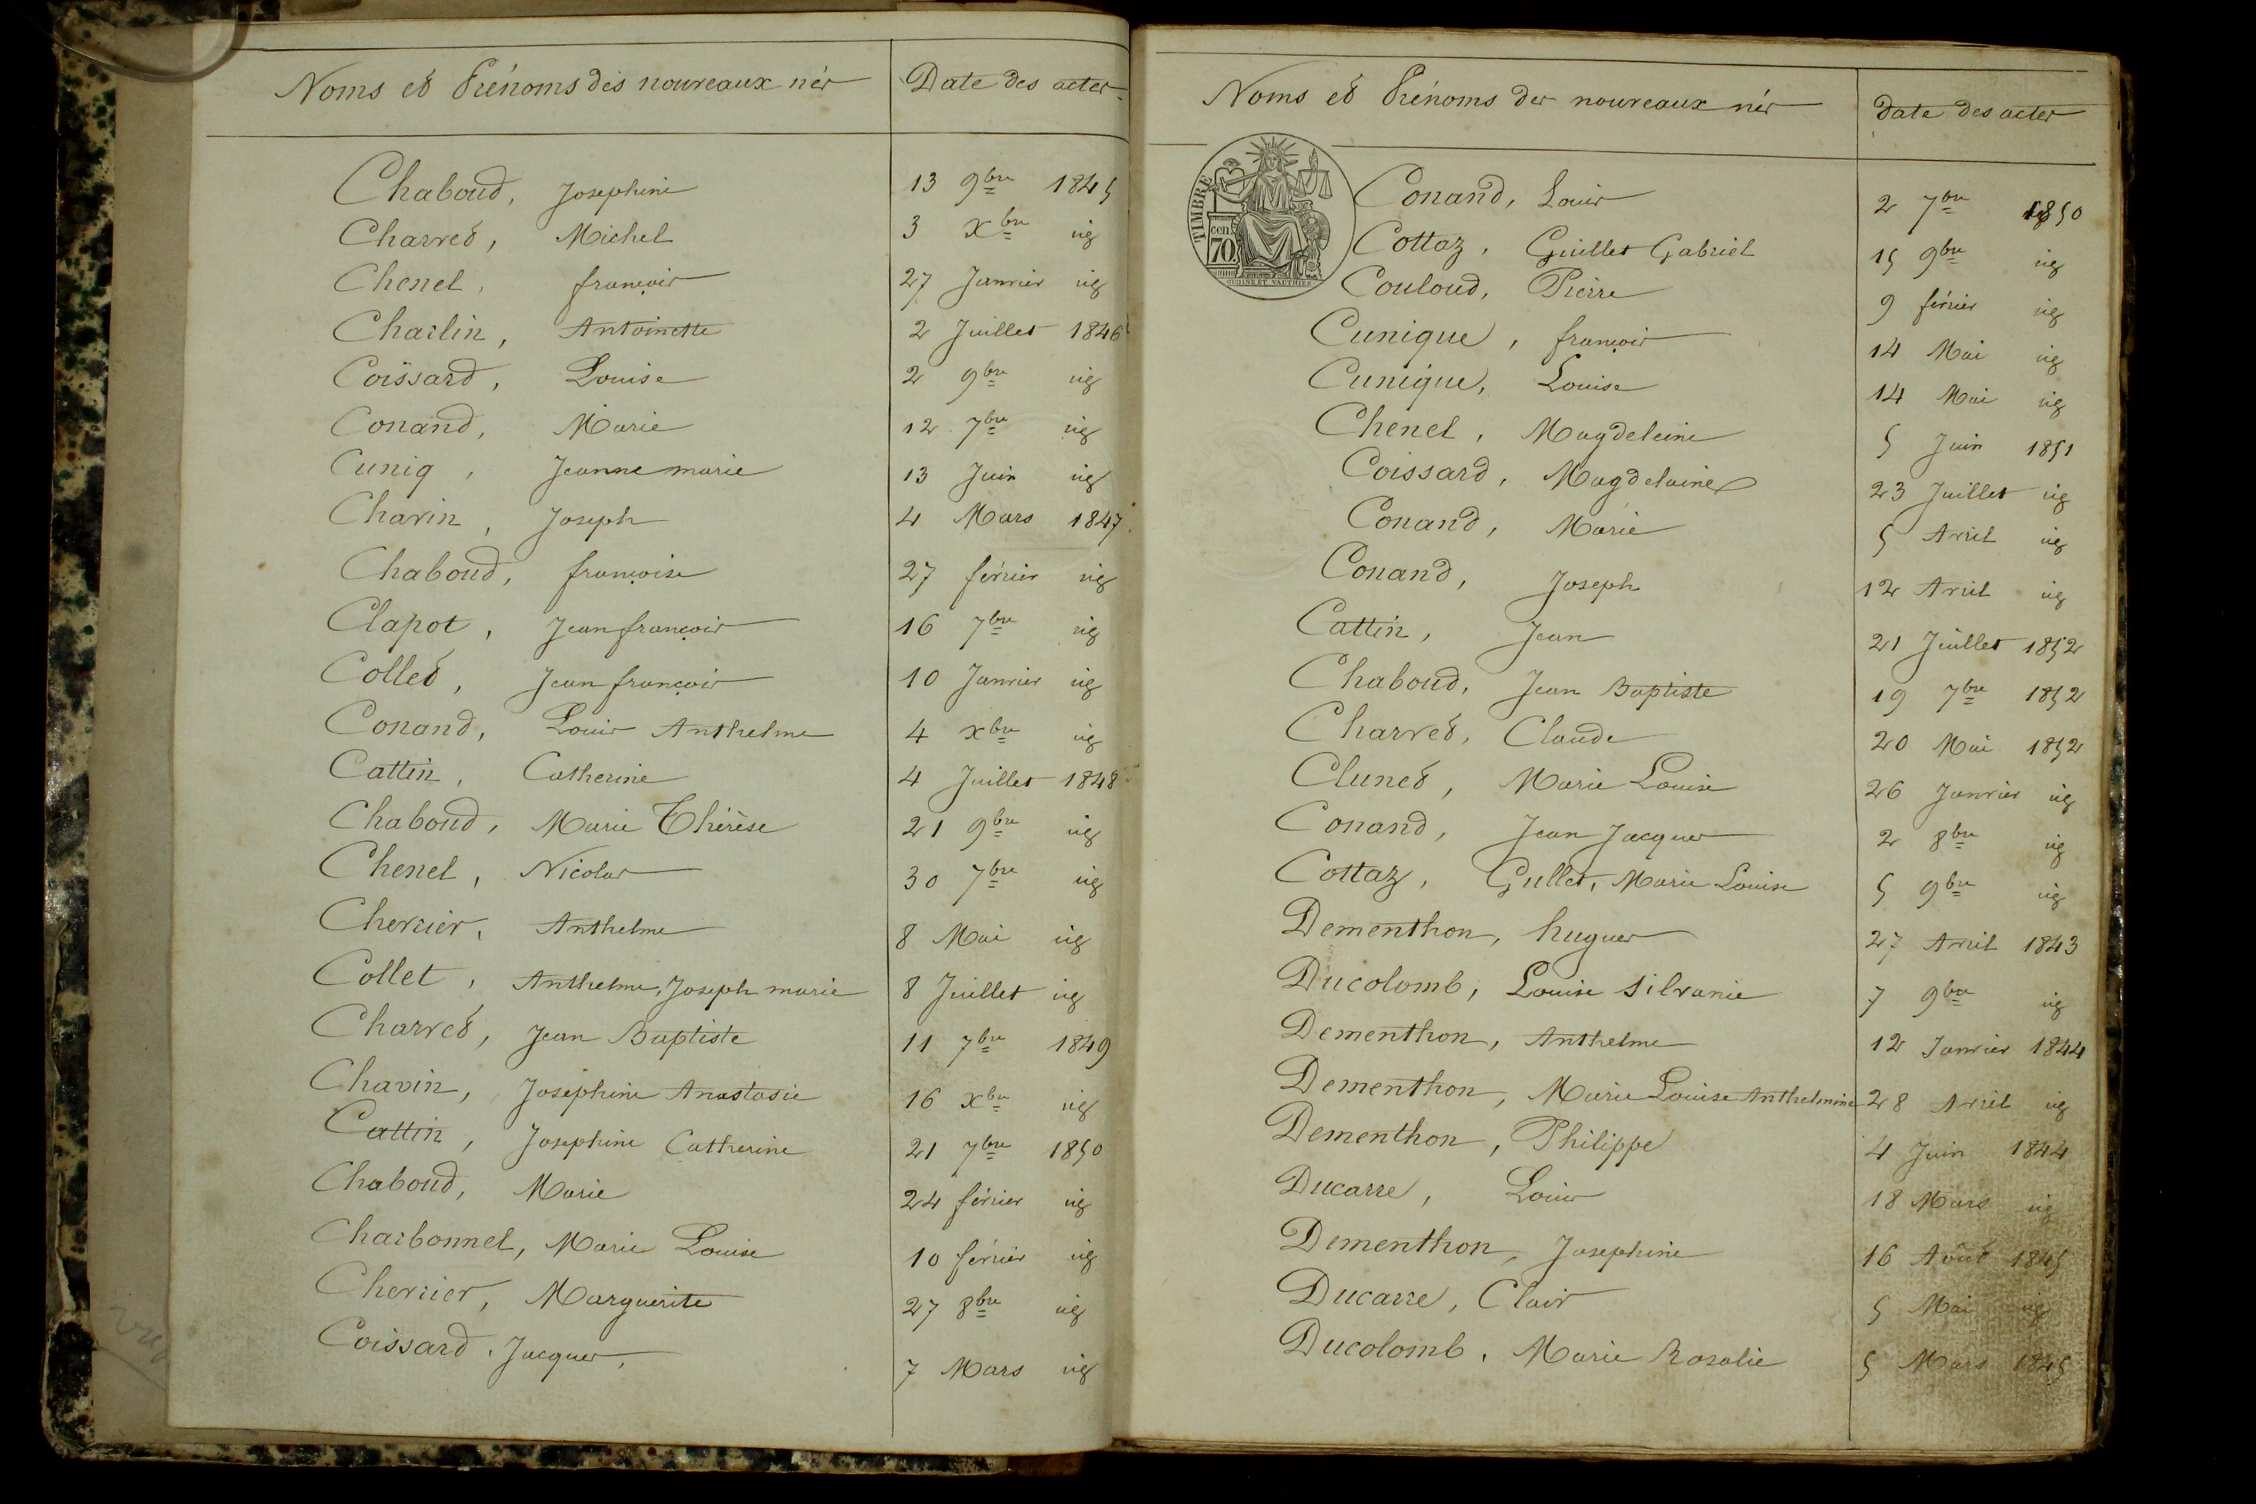 Noms et Prénoms des nouveaux nés Date des actes
Chaboud, Josephine 13 9bre 1845
Charvet, Michel 3 xbre id
Chenel, françois 27 Janvier id
Charlin, Antoinette 2 Juillet 1846
Coissard, Louise 2 9bre id
Conand, Marie 12 7bre id
Cuniq, Jeanne marie 13 Juin id
Chavin, Joseph 4 Mars 1847
Chaboud, françoise 27 février id
Clapot, Jean françois 16 7bre id
Collet, Jean françois 10 Janvier id
Conand, Louis Anthelme 4 xbre id
Cattin, Catherine 4 Juillet 1848
Chaboud, Marie Thérèse 21 9bre id
Chenel, Nicolas 30 7bre id
Chervier, Anthelme 8 Mai id
Collet, Anthelme, Joseph marie 8 Juillet id
Charvet, Jean Baptiste 11 7bre 1849
Chavin, Josephine Anastasie 16 xbre id
Cattin, Josephine Catherine 21 7bre 1850
Chaboud, Marie 24 février id
Charbonnel, Marie Louise 10 février id
Chervier, Marguerite 27 8bre id
Coissard, Jacques, 7 Mars id
Noms et Prénoms des nouveaux nés Date des actes
TIMBRE
cen
70
Conand, Louis 2 7bre 1850
Cottaz, Guillet Gabriel 15 9bre id
Couloud, Pierre 9 février id
Cunique, françois 14 Mai id
Cunique, Louise 14 Mai id
Chenel, Magdeleine 5 Juin 1851
Coissard, Magdelaine 23 Juillet id
Conand, Marie 5 Avril id
Conand, Joseph 12 Avril id
Cattin, Jean 21 Juillet 1852
Chaboud, Jean Baptiste 19 7bre 1852
Charvet, Claude 20 Mai 1852
Clunet, Marie Louise 26 Janvier id
Conand, Jean Jacques 2 8bre id
Cottaz, Gullet, Marie Louise 5 9bre id
Dementhon, hugues 27 Avril 1843
Ducolomb, Louise Silvanie 7 9bre id
Dementhon, Anthelme 12 Janvier 1844
Dementhon, Marie Louise Anthelmine 28 Avril id
Dementhon, Philippe 4 Juin 1844
Ducarre, Louis 18 Mars id
Dementhon, Josephine 16 Août 1845
Ducarre, Clair 5 Mai id
Ducolomb, Marie Rosalie 5 Mars 1845